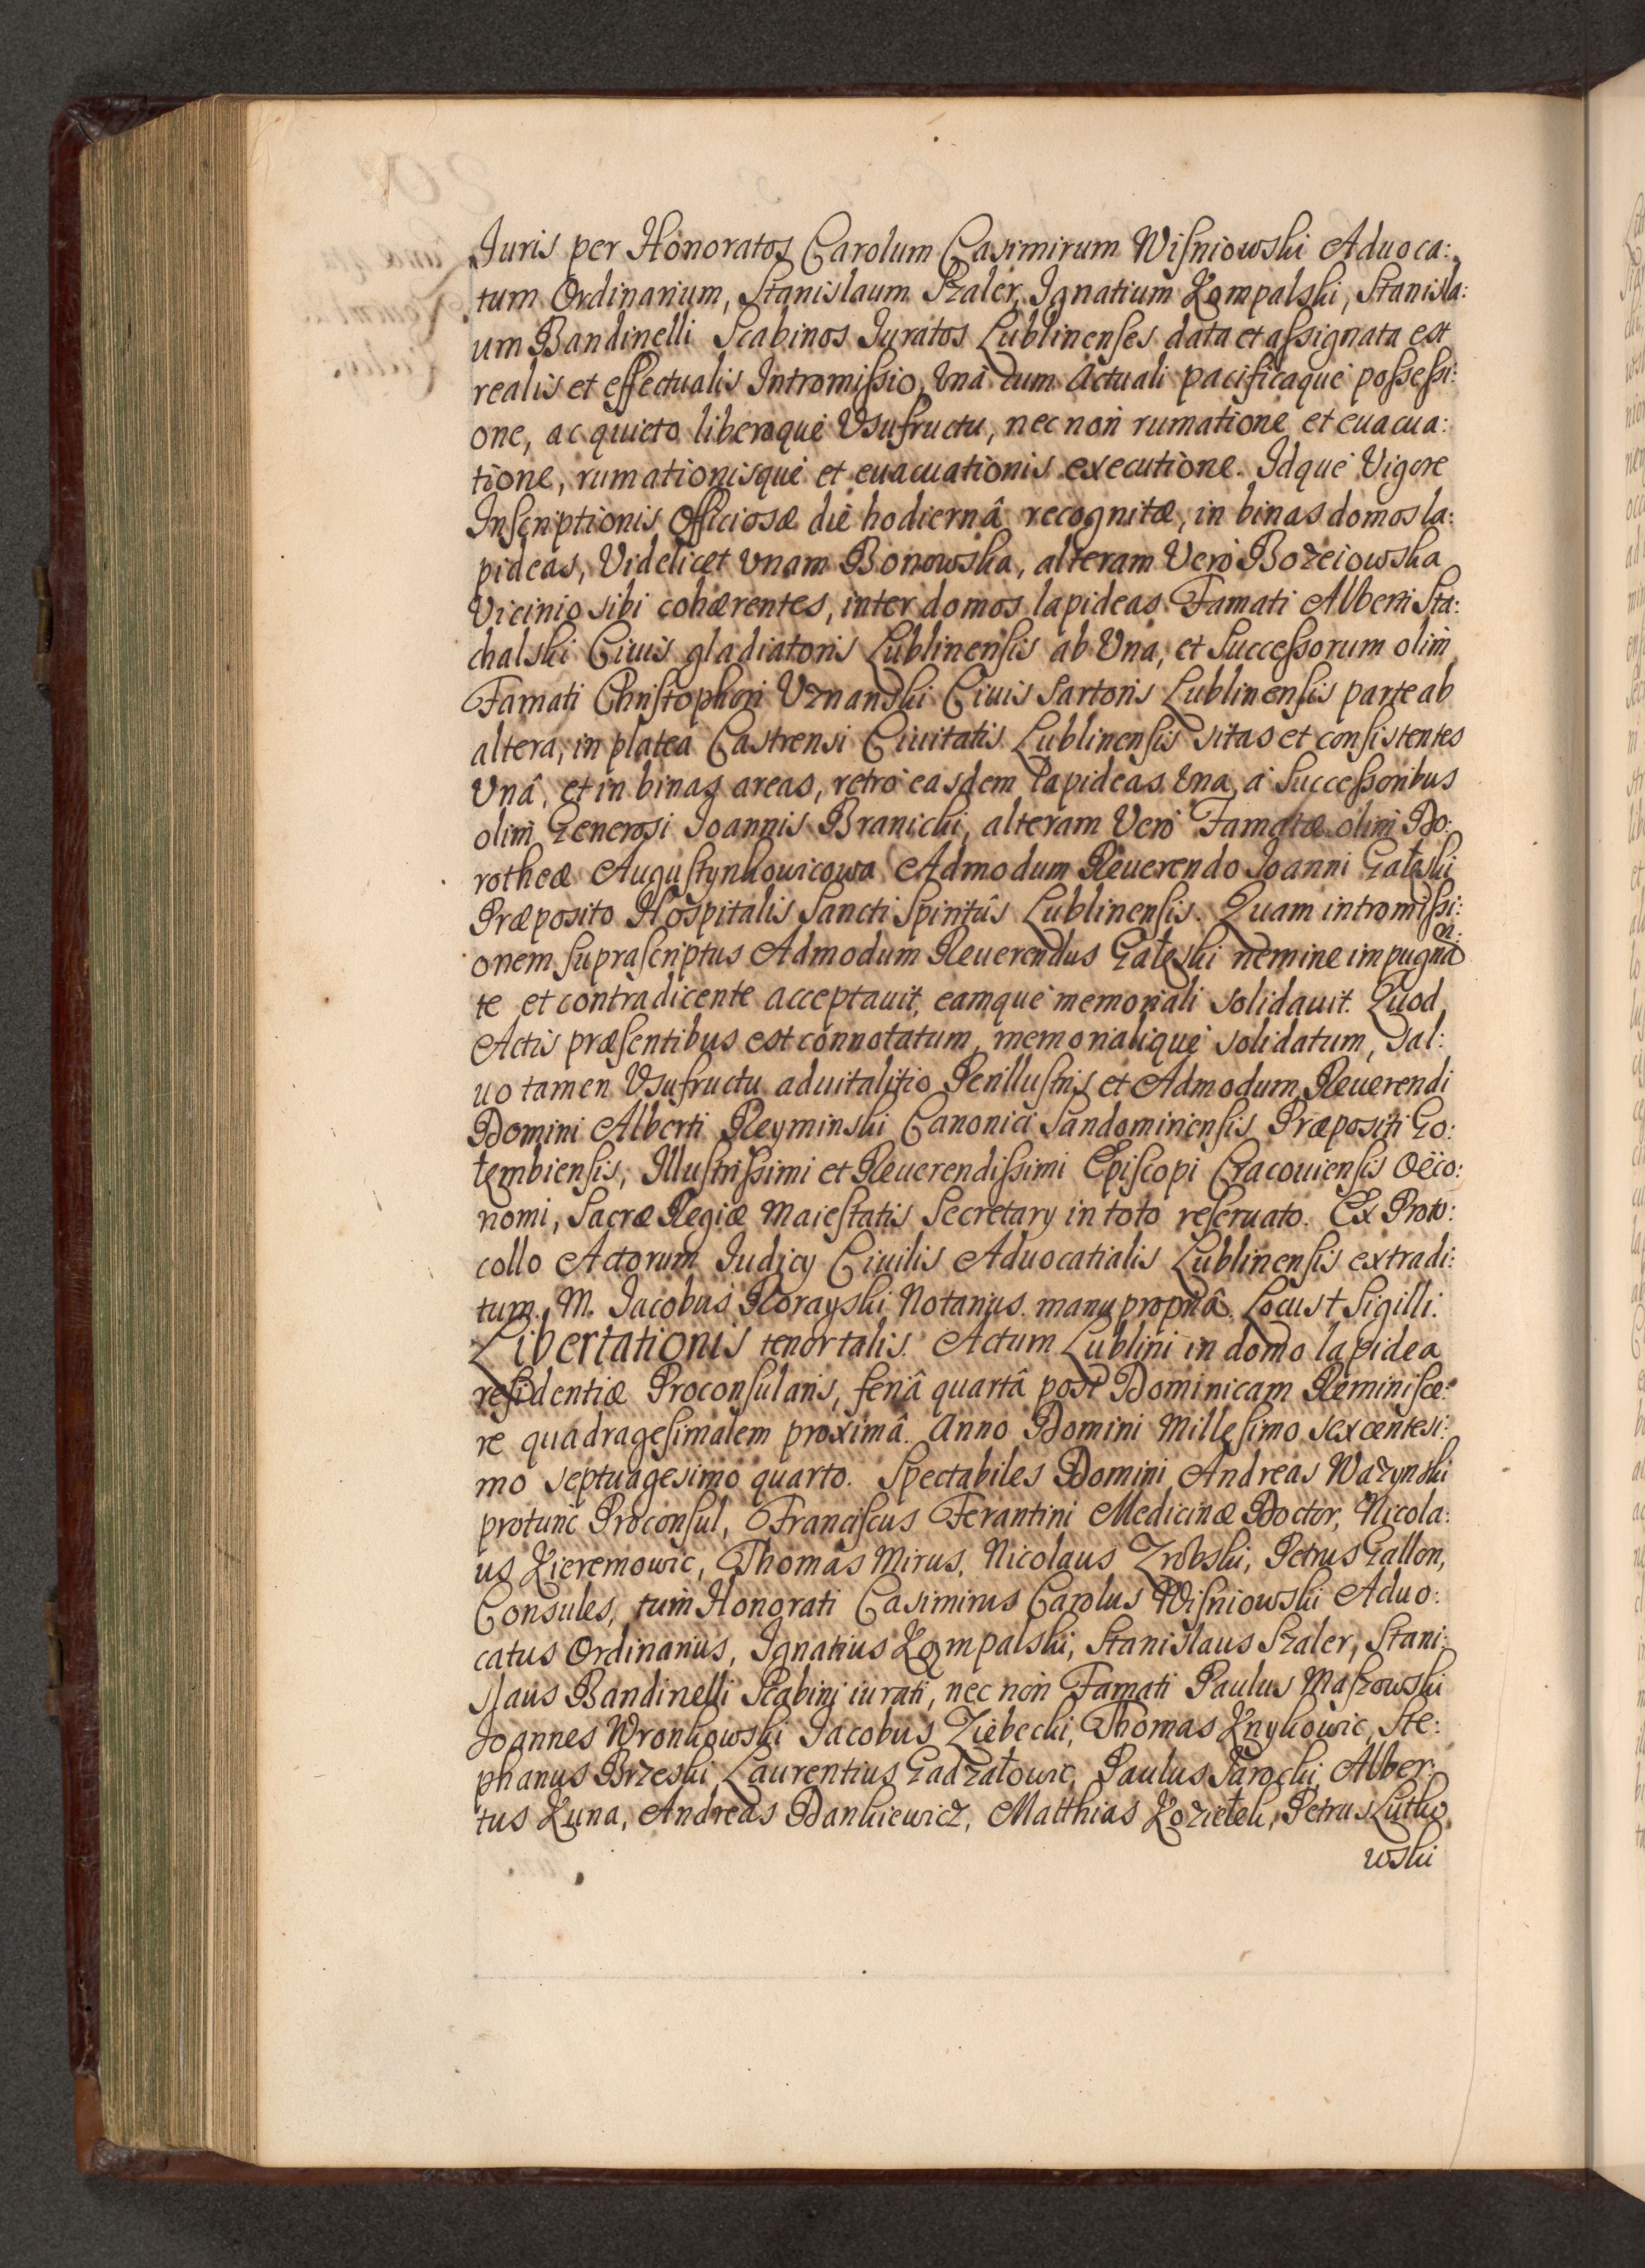 Juris per Honoratos Carolum Casimirum Wiſniowski Aduoca:
tum Ordinarium, Stanislaum Szaler, Ignatium Kompalski, Stanisla:
um Bandinelli Scabinos Juratos Lublinenſes data et aſsignata est
realis et effectualis Intromiſsio, Unâ cum Actuali pacificaque poſseſsi:
one, ac quieto liberoque Vsufructu, nec non rumatione et euacua:
tione, rumationisque et euacuationis executione. Idque Vigore
Inſcriptionis Officiosæ die hodiernâ recognitæ, in binas domos la:
pideas, Videlicet Vnam Bonowska, alteram Vero Bozeiowska
Vicinio sibi cohærentes, inter domos lapideas Famati Alberti Sta:
chalski Ciuis gladiatoris Lublinenſis ab Una, et Succeſsorum olim
Famati Chriſtophori Vznanski Ciuis Sartoris Lublinenſis parte ab
altera, in platea Castrensi Ciuitatis Lublinenſis sitas et conſistentes
Vnâ, et in binas areas, retro easdem lapideas Una a Succeſsoribus
olim Generosi Joannis Branicki, alteram Vero Famatæ olim Do:
rotheæ Auguſtynkowicowa Admodum Reuerendo Joanni Gałęski
Præposito Hospitalis Sancti Spiritûs Lublinenſis. Quam intromiſsi:
onem ſupraſcriptus Admodum Reuerendus Gałęski nemine impugnan:
te et contradicente acceptauit, eamque memoriali solidauit. Quod
Actis præſentibus est connotatum, memorialique solidatum, sal:
uo tamen Vsufructu aduitalitio Perilluſtris et Admodum Reuerendi
Domini Alberti Reyminski Canonici Sandomiriensis Præpositi Go:
łembiensis, Illuſtriſsimi et Reuerendiſsimi Epiſcopi Cracouienſis Oeco:
nomi, Sacræ Regiæ Maieſtatis Secretary in toto reſeruato. Ex Proto:
collo Actorum Judicy Ciuilis Aduocatialis Lublinenſis extradi:
tum. M. Jacobus Korayski Notarius manu propriâ. Locus † Sigilli.
Libertationis tenor talis. Actum Lublini in domo lapidea
reſidentiæ Proconſularis, feriâ quartâ post Dominicam Reminiſce:
re quadrageſimalem proximâ. Anno Domini Milleſimo sexcentesi:
mo septuagesimo quarto. Spectabiles Domini Andreas Wazynski
protunc Proconſul, Franciſcus Ferantini Medicinæ Doctor, Nicola:
us Kieremowic, Thomas Mirus, Nicolaus Zrobski, Petrus Gallon,
Consules, tum Honorati Casimirus Carolus Wiſniowski Aduo:
catus Ordinarius, Ignatius Kompalski, Stanislaus Szaler, Stani:
slaus Bandinelli Scabini iurati, nec non Famati Paulus Maſzowski
Joannes Wronkowski Jacobus Ziebecki, Thomas Knykowic, Ste:
phanus Brzeski, Laurentius Gadzałowic, Paulus Sarocki, Alber:
tus Kuna, Andreas Dankiewicz, Matthias Koziełek, Petrus Lutko
wski